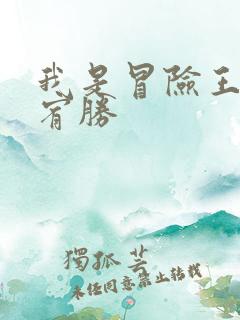 我是冒險王
宥勝
獨孤芸
未经同意禁止转载